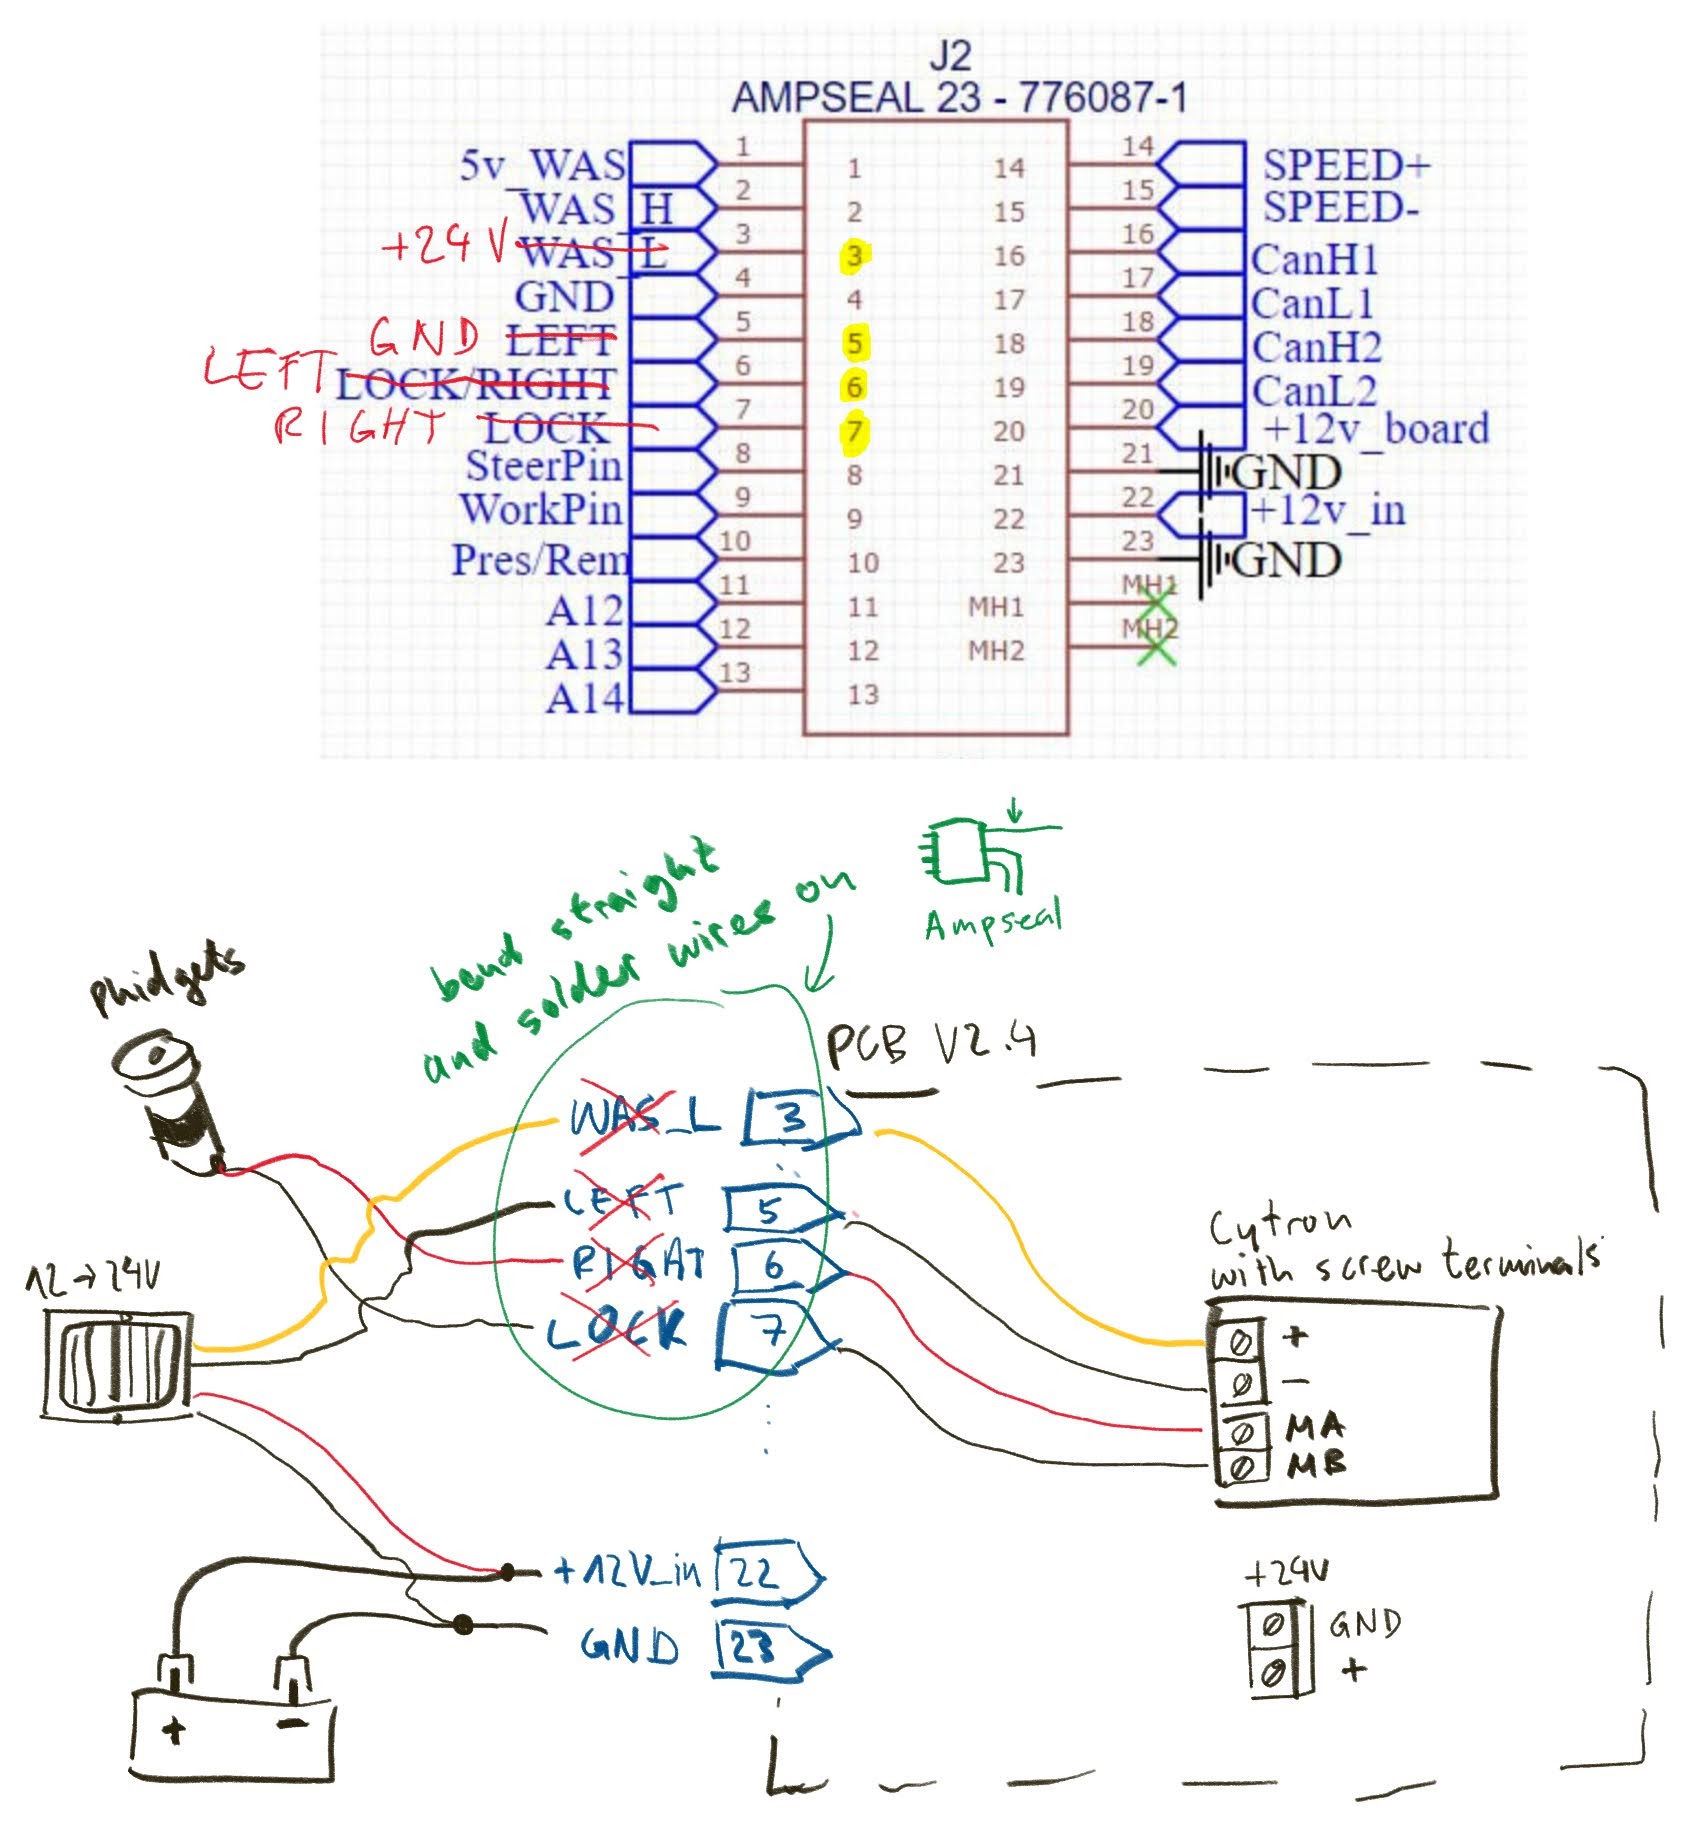 J2
AMPSEAL 23 - 776087-1
5v_WAS 1 1 14 14 SPEED+
WAS_H 2 2 15 15 SPEED-
+24V WAS_L 3 3 16 16 CanH1
GND 4 4 17 17 CanL1
GND LEFT 5 5 18 18 CanH2
LEFT LOCK/RIGHT 6 6 19 19 CanL2
RIGHT LOCK 7 7 20 20 +12v_board
SteerPin 8 8 21 21 GND
WorkPin 9 9 22 22 +12v_in
Pres/Rem 10 10 23 23 GND
A12 11 11 MH1 MH1
A13 12 12 MH2 MH2
A14 13 13
bend straight
and solder wires on
Ampseal
phidgets
PCB V2.4
WAS_L 3
LEFT 5
RIGHT 6
LOCK 7
12→24V
Cytron
with screw terminals
+
-
MA
MB
+12V_in 22
GND 23
+24V
GND
+
+ -